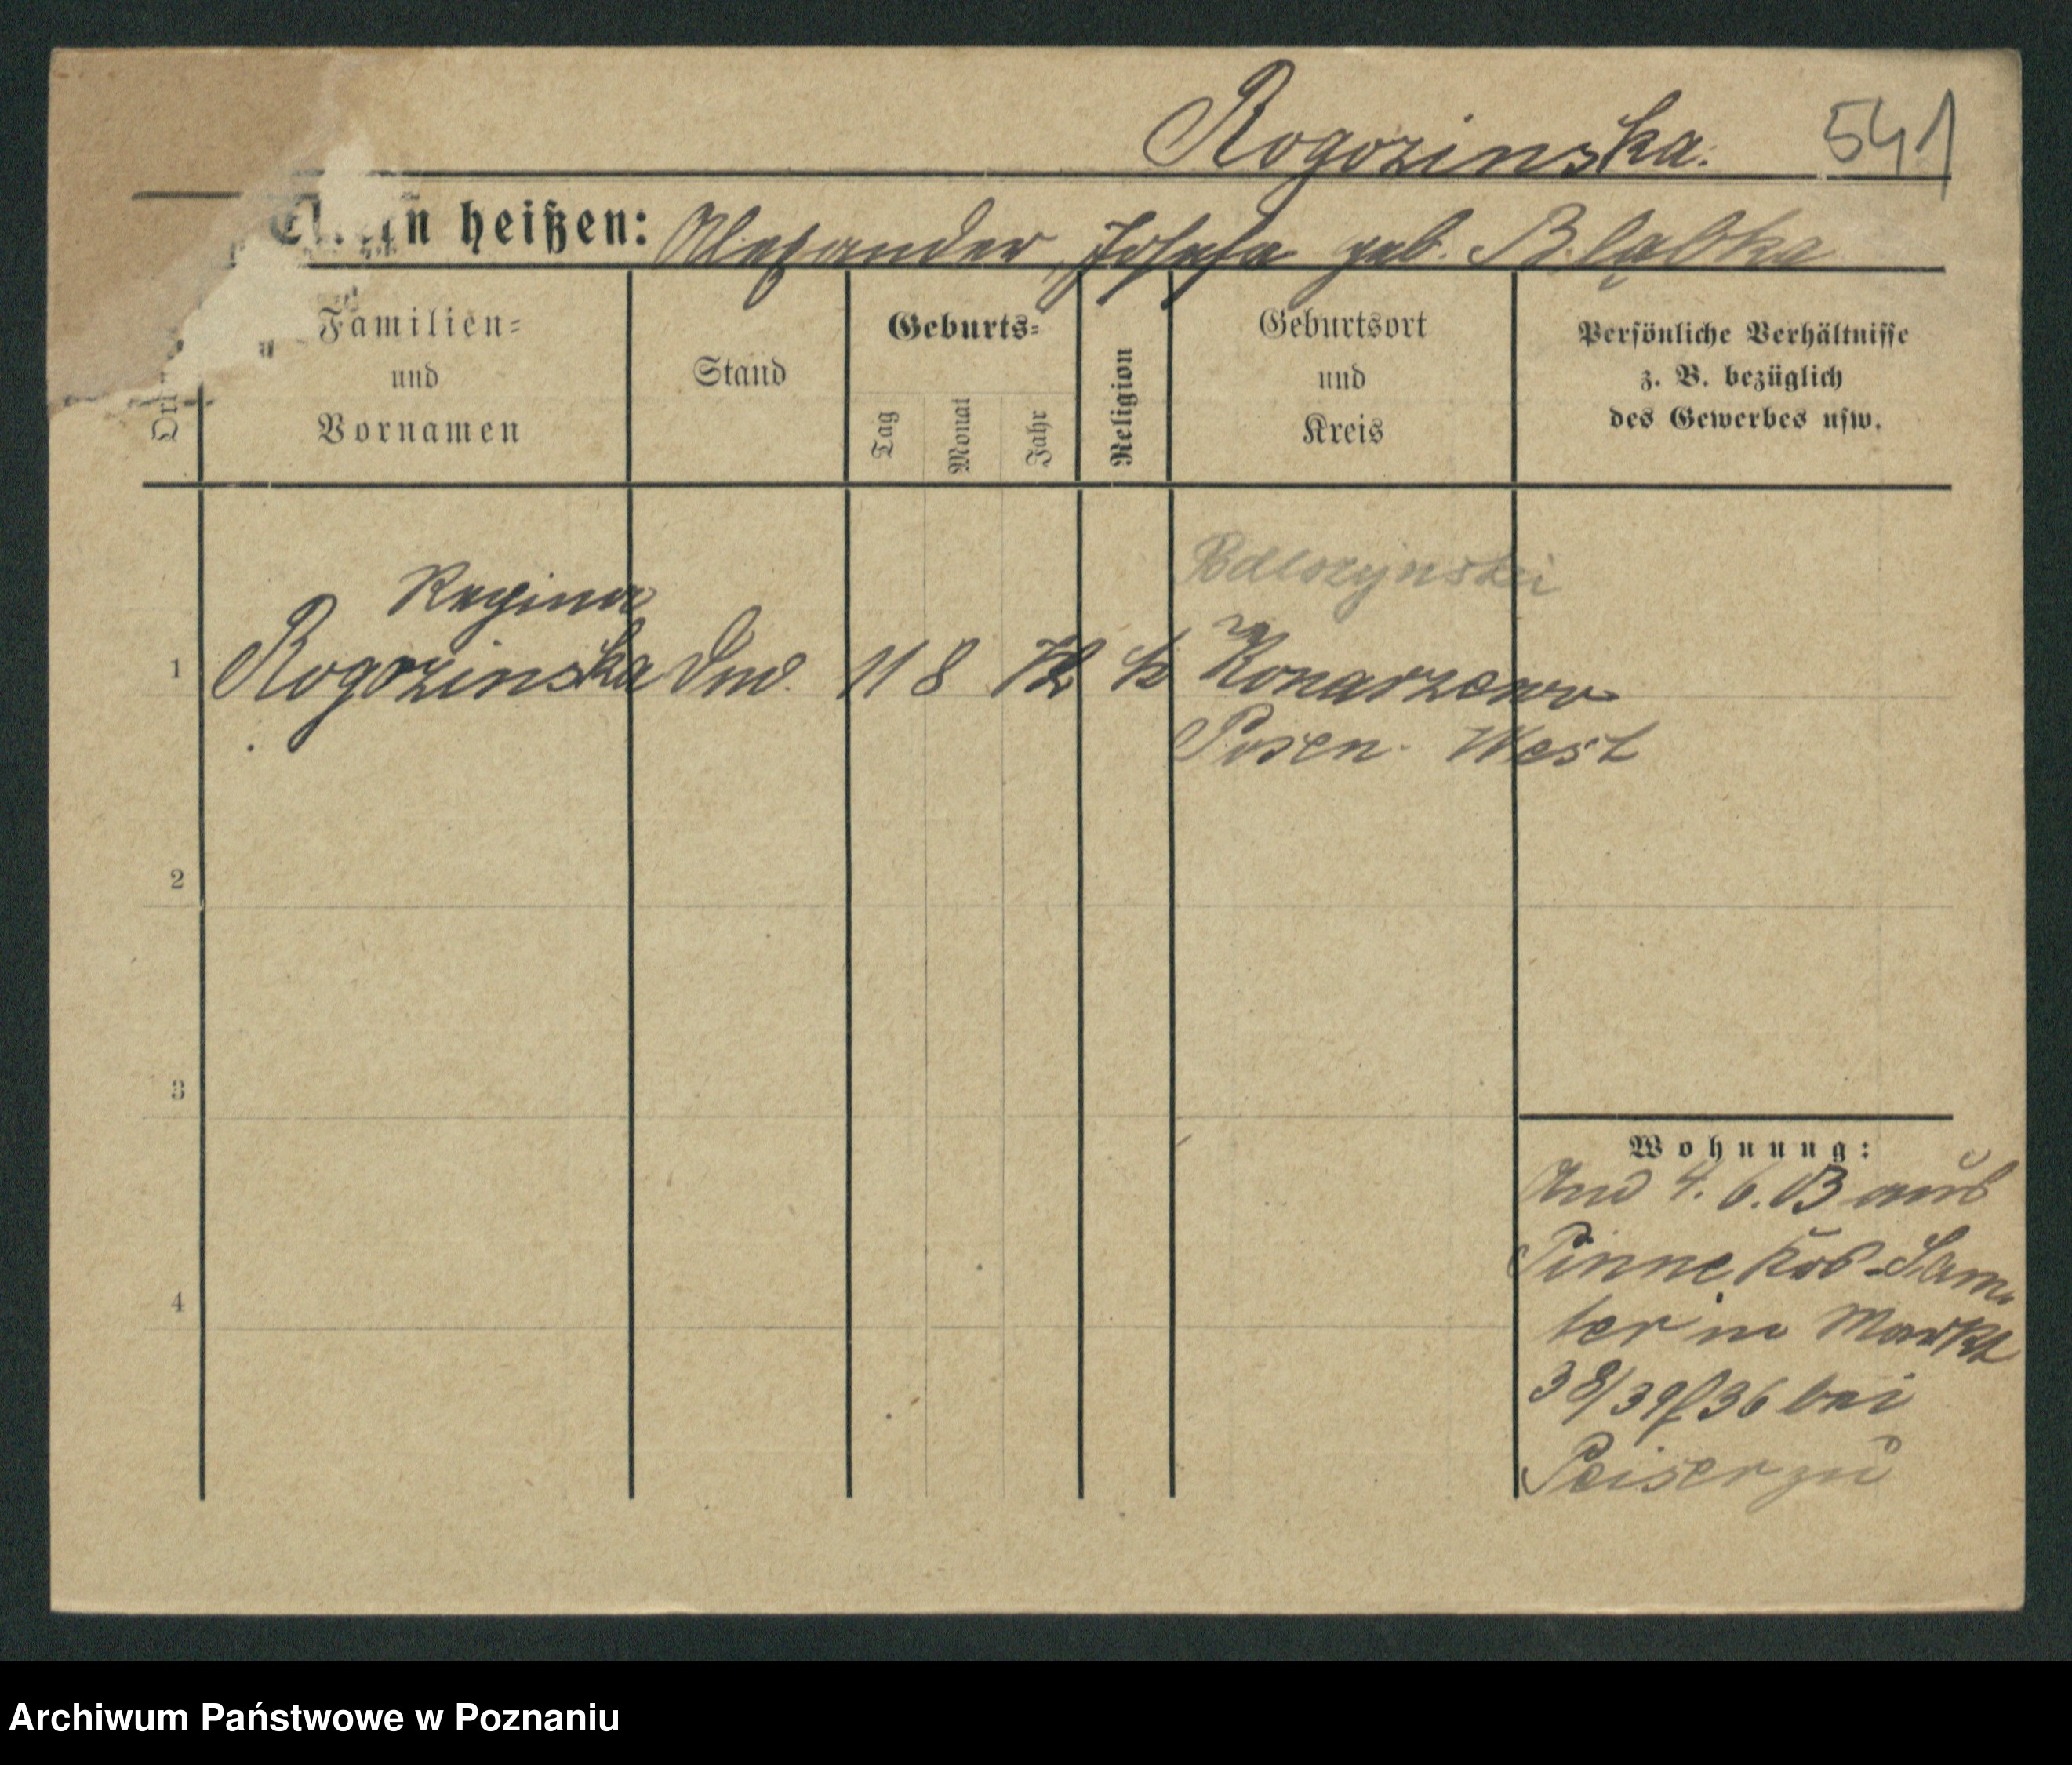 Rogozinska. 541
Eltern heißen: Alexander, Josefa geb. Bląbka
Familien-
und
Vornamen
Stand
Geburts-
Tag
Monat
Jahr
Religion
Geburtsort
und
Kreis
Persönliche Verhältnisse
z. B. bezüglich
des Gewerbes usw.
Regina
1 Rogozinska 11 8 k Konarzewo
Posen West
2
3
4
Wohnung:
4. 6. 03 aus
Pinne, Krs. Sam-
ter in Markt
38/39 36 bei
Peiser zu
Archiwum Państwowe w Poznaniu